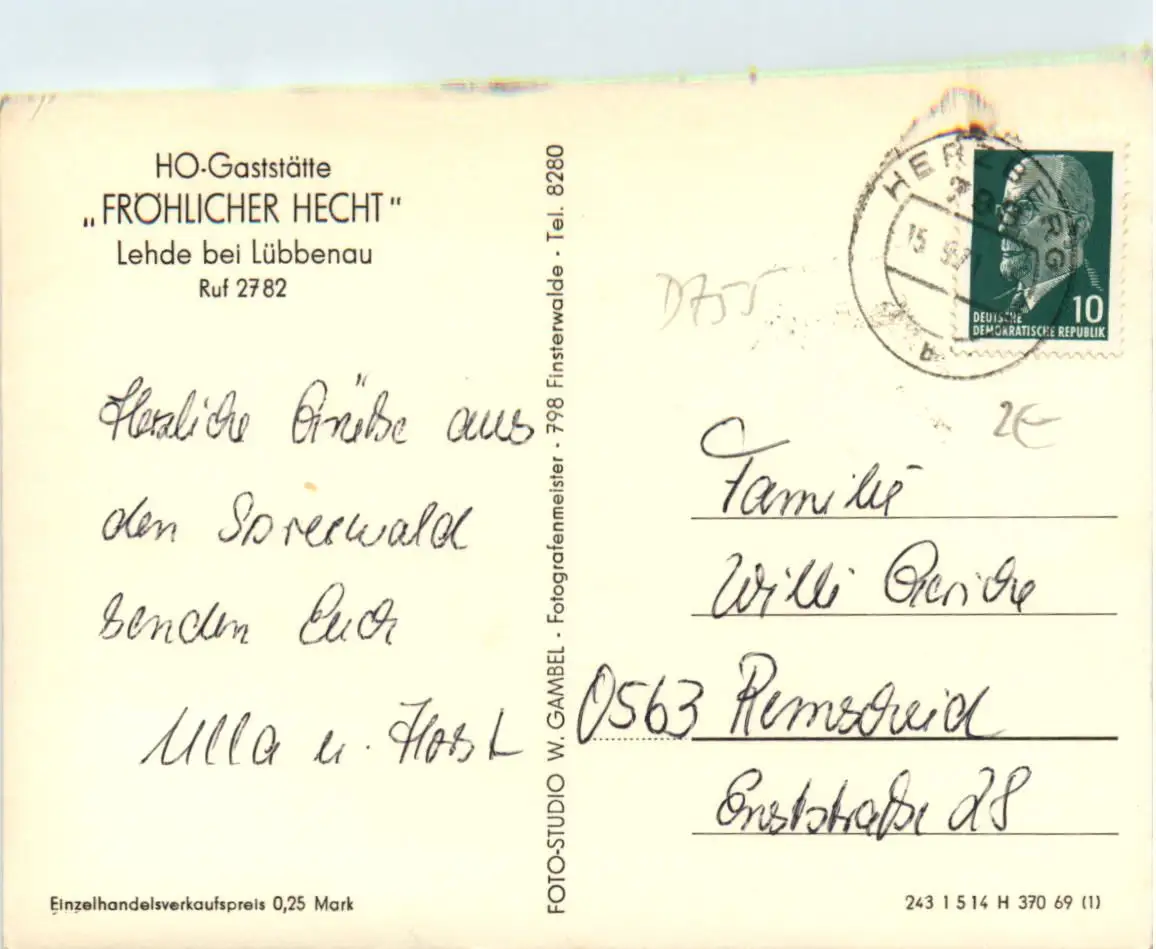 HO-Gaststätte
„FRÖHLICHER HECHT"
Lehde bei Lübbenau
Ruf 2782
Herzliche Grüße aus
den Spreewald
senden Euch
Ulla u. Horst
Einzelhandelsverkaufspreis 0,25 Mark
FOTO-STUDIO W. GAMBEL · Fotografenmeister · 798 Finsterwalde · Tel. 8280
HERZBERG
15
10
DEUTSCHE
DEMOKRATISCHE REPUBLIK
D755
2€
Familie
Willi Gericke
0563 Remscheid
Ernststraße 28
243 1 5 14 H 370 69 (1)